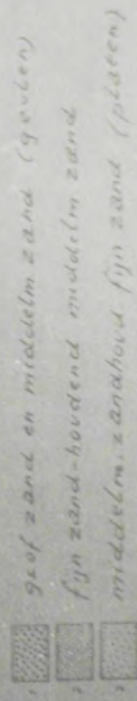 1 grof zand en middelm zand (geulen)
2 fijn zand-houdend middelm zand
3 middelm. zandhoud. fijn zand (platen)